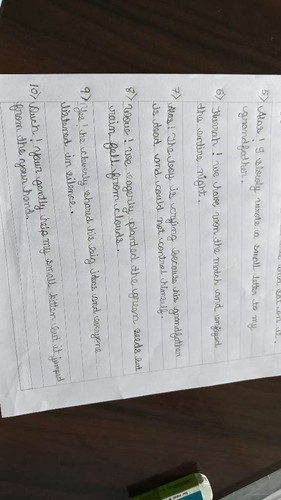 5) Alas! I slowly wrote a small letter to my
grandfather.
6) Hurrah! we have won the match and enjoyed
the entire night.
7) Alas! The boy is crying because his grandfather
is dead and could not control himself.
8) we eagerly planted the green seeds but
rain fall from clouds.
9) Yes! he cleverly shared his big idea and everyone
listened in silence.
10) Ouch! your gently help my small kitten but it jumped
from the your hand.